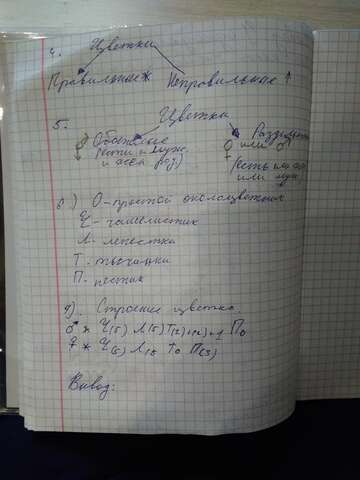 4. Цветки
Правильные * Неправильные ↑
5. Цветки
Обоеполые
(есть и муж.
и жен.
♀ или ♂
(есть или жен
или муж
6) О-простой околоцветник
Ч-чашелистик
Л-лепестки
Т-тычинки
П-пестик
7). Строение цветка
♂ * Ч(5) Л(5) Т(2)+(2)+1 П0
♀ * Ч(5) Л(5 Т0 П(3)
Вывод: